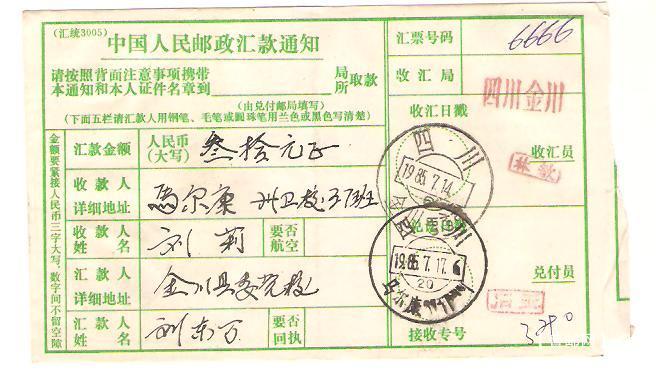 (汇统3005)
中国人民邮政汇款通知
汇票号码 6666
请按照背面注意事项携带
本通知和本人证件名章到 局所取款
收汇局 四川金川
(由兑付邮局填写)
收汇日戳
(下面五栏请汇款人用钢笔、毛笔或圆珠笔用兰色或黑色写清楚)
金额要紧接人民币三字大写,数字间不留空隙
汇款金额 人民币(大写) 叁拾元正
四川
1985.7.14.
收汇员
收款人详细地址 马尔康 州卫校37班
收款人姓名 刘莉 要否航空
兑付日戳
四川
1985.7.17.
20
马尔康
汇款人详细地址 金川县委党校
兑付员
汇款人姓名 刘东万 要否回执
接收专号